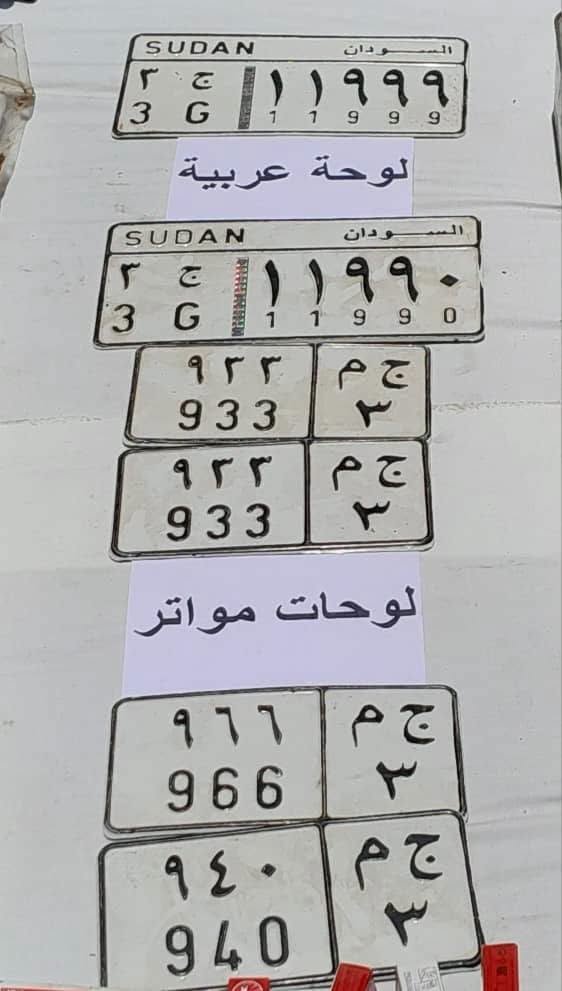 SUDAN الســـودان
٣ ج ١١٩٩٩
3 G 1 1 9 9 9
لوحة عربية
SUDAN الســـودان
٣ ج ١١٩٩٠
3 G 1 1 9 9 0
٩٣٣ ج م
933 ٣
٩٣٣ ج م
933 ٣
لوحات مواتر
٩٦٦ ج م
966 ٣
٩٤٠ ج م
940 ٣